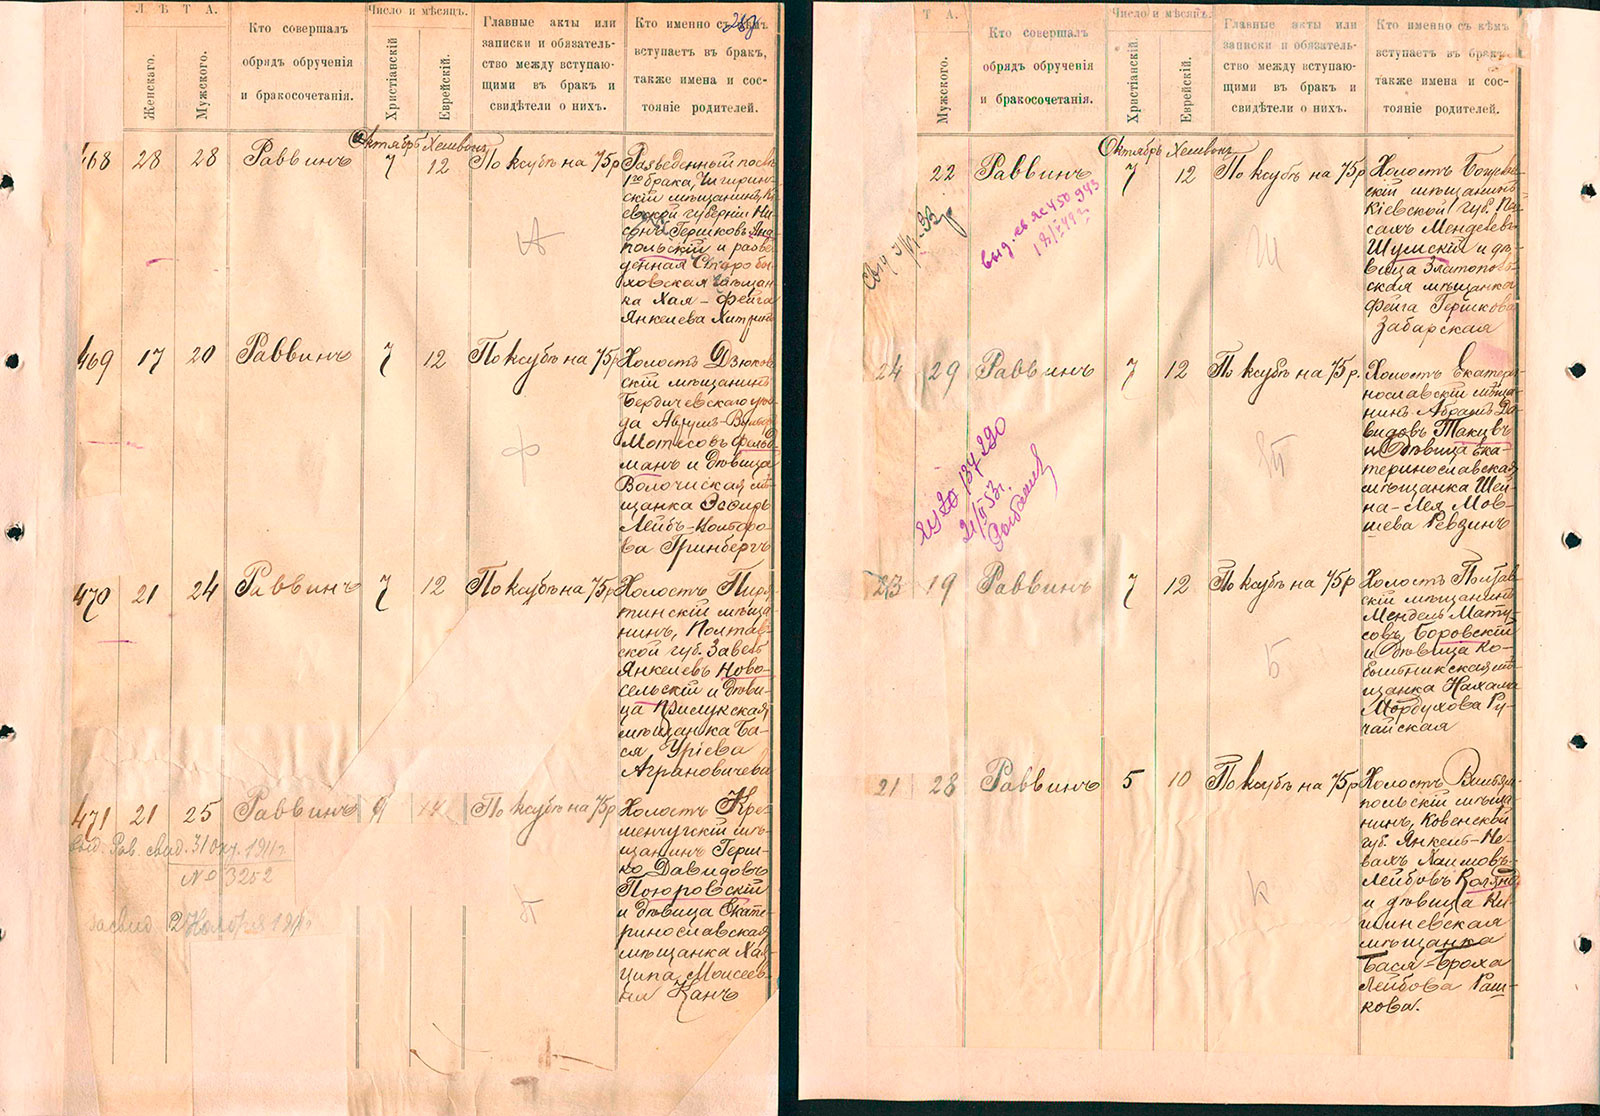 Л Ѣ Т А.
Женскаго.
Мужского.
Кто совершалъ
обрядъ обрученія
и бракосочетанія.
Число и мѣсяцъ.
Христіанскій
Еврейскій.
Главные акты или
записки и обязатель-
ство между вступаю-
щими въ бракъ и
свидѣтели о нихъ.
Кто именно съ кѣмъ
вступаетъ въ бракъ,
также имена и сос-
тояніе родителей.
Октябрь Хешвонъ
468 28 28 Раввинъ 7 12 По ксубѣ на 75р
Разведенный послѣ
1го брака, Чигирин-
скій мѣщанинъ Кі-
евской губерніи Ни-
сонъ Гершковъ
польскій и разве-
денная Старобы-
ховская мѣщан-
ка Хая-Фейга
Янкелева
А
469 17 20 Раввинъ 7 12 По ксубѣ на 75р
Холостъ Дзюнков-
скій мѣщанинъ
Бердичевскаго уѣз-
да Аврумъ-Вольфъ
Мотесовъ Фельд-
манъ и дѣвица
Волочиская мѣ-
щанка Эсфирь
Лейбъ-
ва Гринбергъ
Ф
470 21 24 Раввинъ 7 12 По ксубѣ на 75р
Холостъ Пиря-
тинскій мѣща-
нинъ, Полтав-
ской губ. Завелъ
Янкелевъ Ново-
сельскій и дѣви-
ца Прилукская
мѣщанка Ба-
ся Уріева
Аграновичева
471 21 25 Раввинъ 9 14 По ксубѣ на 75р
Холостъ Кре-
менчугскій мѣ-
щанинъ Герш-
ко Давидовъ
Поюровскій
и дѣвица Екате-
ринославская
мѣщанка Хая-
Ципа Моисеев-
на Канъ
П
выд. Рав. свид. 31 Окт. 1911г.
№ 3252
засвид. 2 Ноября 1911
Т А.
Мужского.
Кто совершалъ
обрядъ обрученія
и бракосочетанія.
Число и мѣсяцъ.
Христіанскій.
Еврейскій.
Главные акты или
записки и обязатель-
ство между вступаю-
щими въ бракъ и
свидѣтели о нихъ.
Кто именно съ кѣмъ
вступаетъ въ бракъ,
также имена и сос-
тояніе родителей.
Октябрь Хешвонъ
22 Раввинъ 7 12 По ксубѣ на 75р
Холостъ Богуслав-
скій мѣщанинъ
Кіевской губ. Пей-
сахъ Менделевъ
Шумскій и дѣ-
вица Златополь-
ская мѣщанка
Фейга Гершкова
Забарская
Ш
выд. св. ЯС 450943
24 29 Раввинъ 7 12 По ксубѣ на 75р.
Холостъ Екатери-
нославскій мѣща-
нинъ Абрамъ Да-
видовъ Такивъ
и дѣвица Ека-
теринославская
мѣщанка Шей-
на-Лея Мов-
шева Ревзинъ
137290
21/II 53г.
23 19 Раввинъ 7 12 По ксубѣ на 75р
Холостъ Полтав-
скій мѣщанинъ
Мендель Мату-
совъ Боровскій
и дѣвица Ко-
белякская мѣ-
щанка Нахама
Мордухова Ру-
чайская
Б
21 28 Раввинъ 5 10 По ксубѣ на 75р
Холостъ Вильям-
польскій мѣща-
нинъ, Ковенской
губ. Янкель-Не-
вахъ Хаимовъ-
Лейбовъ Колянд
и дѣвица Ки-
шиневская
мѣщанка
Бася-Броха
Лейбова Раш-
кова.
К